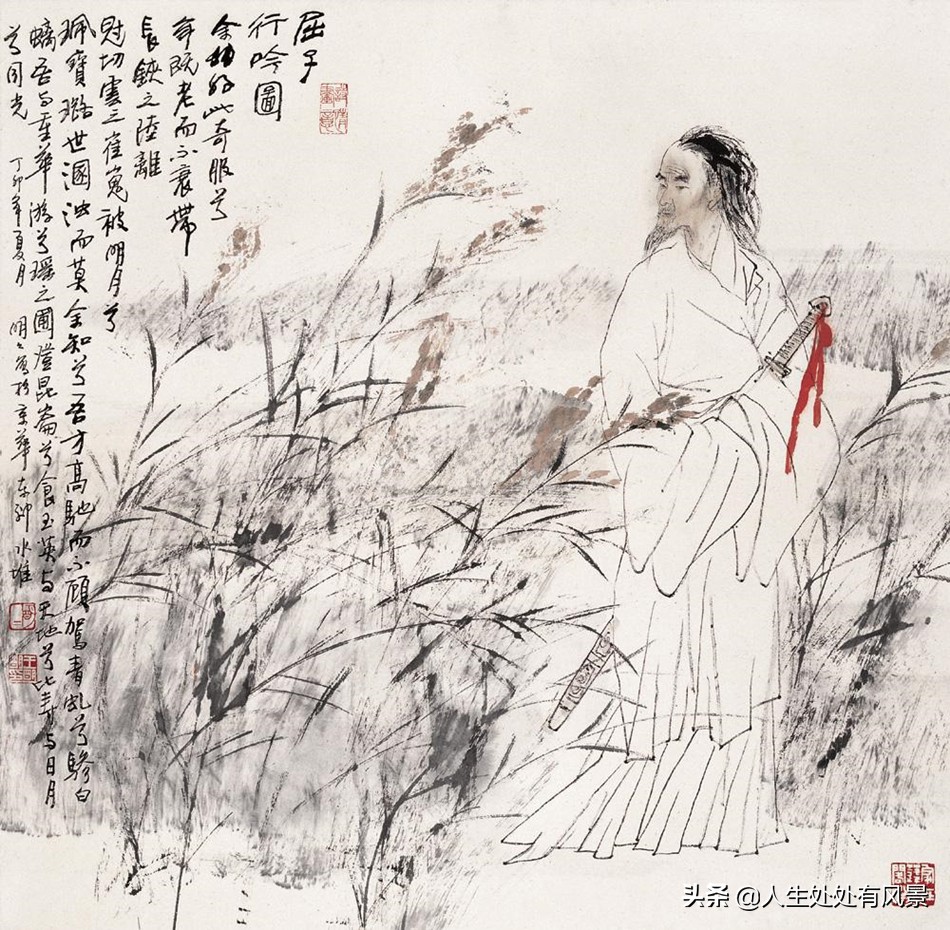 屈子
行吟圖
余幼好此奇服兮
年既老而不衰帶
長鋏之陸離
冠切雲之崔嵬被明月兮
珮寶璐世溷浊而莫余知兮吾方高馳而不顧駕青虬兮驂白
螭吾与重華游兮瑶之圃登昆崙兮食玉英与天地兮比寿与日月
兮同光
丁卯年夏月 明々寫於京華東郊水堆
头条 @人生处处有风景